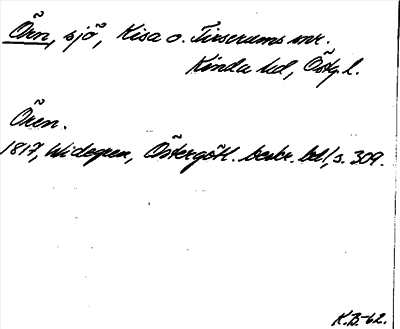 Örn, sjö, Kisa o. Tirserums snr.
Kinda hd, Östg. l.
Ören.
1817, Widegren, Östergötl. beskr. bd 1, s. 309.
K.B-62.